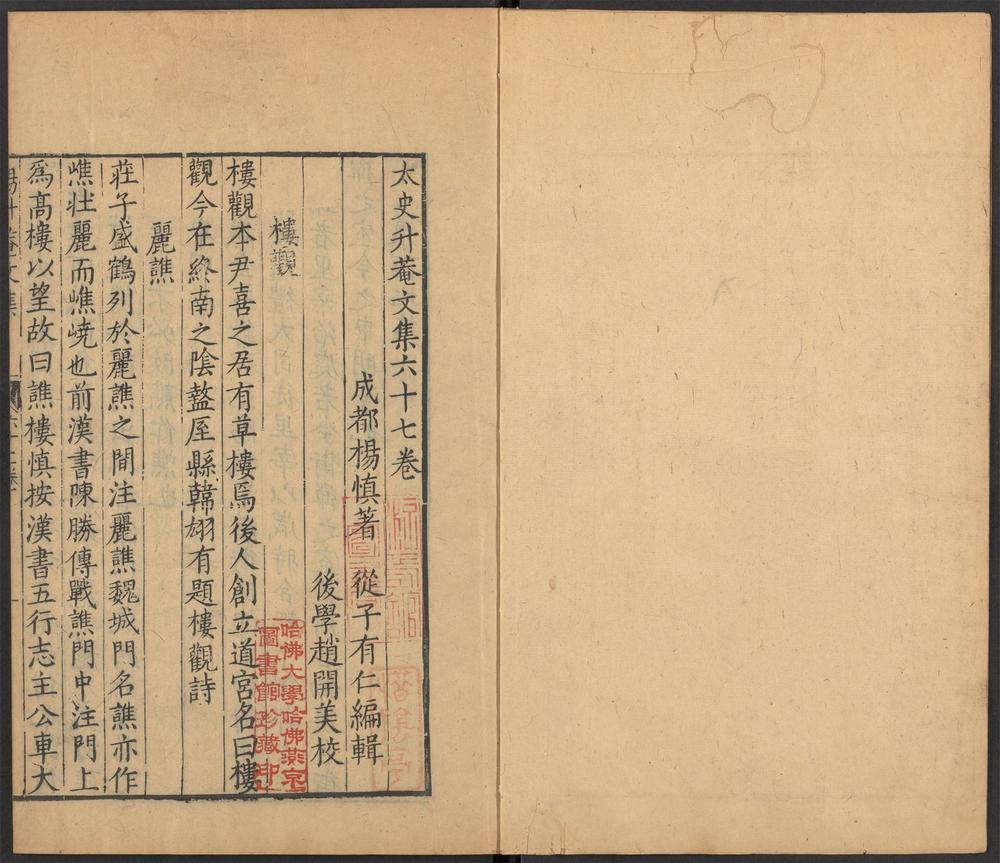 太史升菴文集六十七卷
成都楊慎著 從子有仁編輯
後學趙開美校
樓觀
樓觀本尹喜之居有草樓焉後人創立道宮名曰樓
觀今在終南之陰盩厔縣韓翃有題樓觀詩
麗譙
莊子盛鶴列於麗譙之間注麗譙魏城門名譙亦作
嶕壯麗而嶕嶢也前漢書陳勝傳戰譙門中注門上
為高樓以望故曰譙樓慎按漢書五行志主公車大
哈佛大學哈佛燕京
圖書館珍藏印